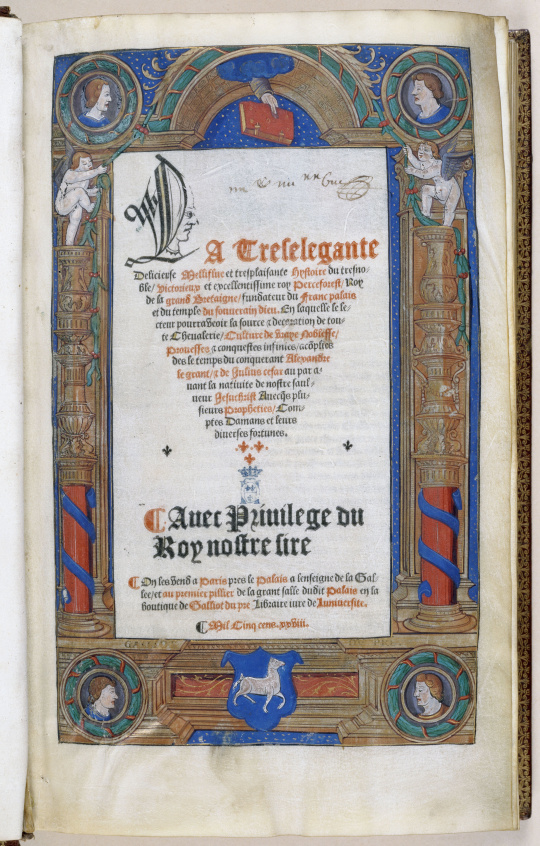 LA Treselegante
Delicieuse Melliflue et tresplaisante hystoire du tresno-
ble/ victorieux et excellentissime roy Perceforest/ Roy
de la grand Bretaigne/ fundateur du Franc palais
et du temple du souverain dieu. En laquelle le le-
cteur pourra veoir la source ⁊ decoration de tou-
te Chevalerie/ Culture de vraye Noblesse/
Prouesses ⁊ conquestes infinies/ acõplies
des le temps du conquerant Alexandre
le grant/ ⁊ de Julius cesar au par a-
vant la nativite de nostre saul-
ueur Jesuchrist Avecq̃s plu-
sieurs Propheties/ Com-
ptes Damans et leurs
diverses fortunes.
¶ Avec Privilege du
Roy nostre sire
¶ On les vend a Paris pres le Palais a lenseigne de la Gal-
lee/ et au premier pillier de la grant salle dudit Palais en la
boutique de Galliot du pre Libraire iure de Luniversite.
¶ Mil Cinq cens. xxviii.